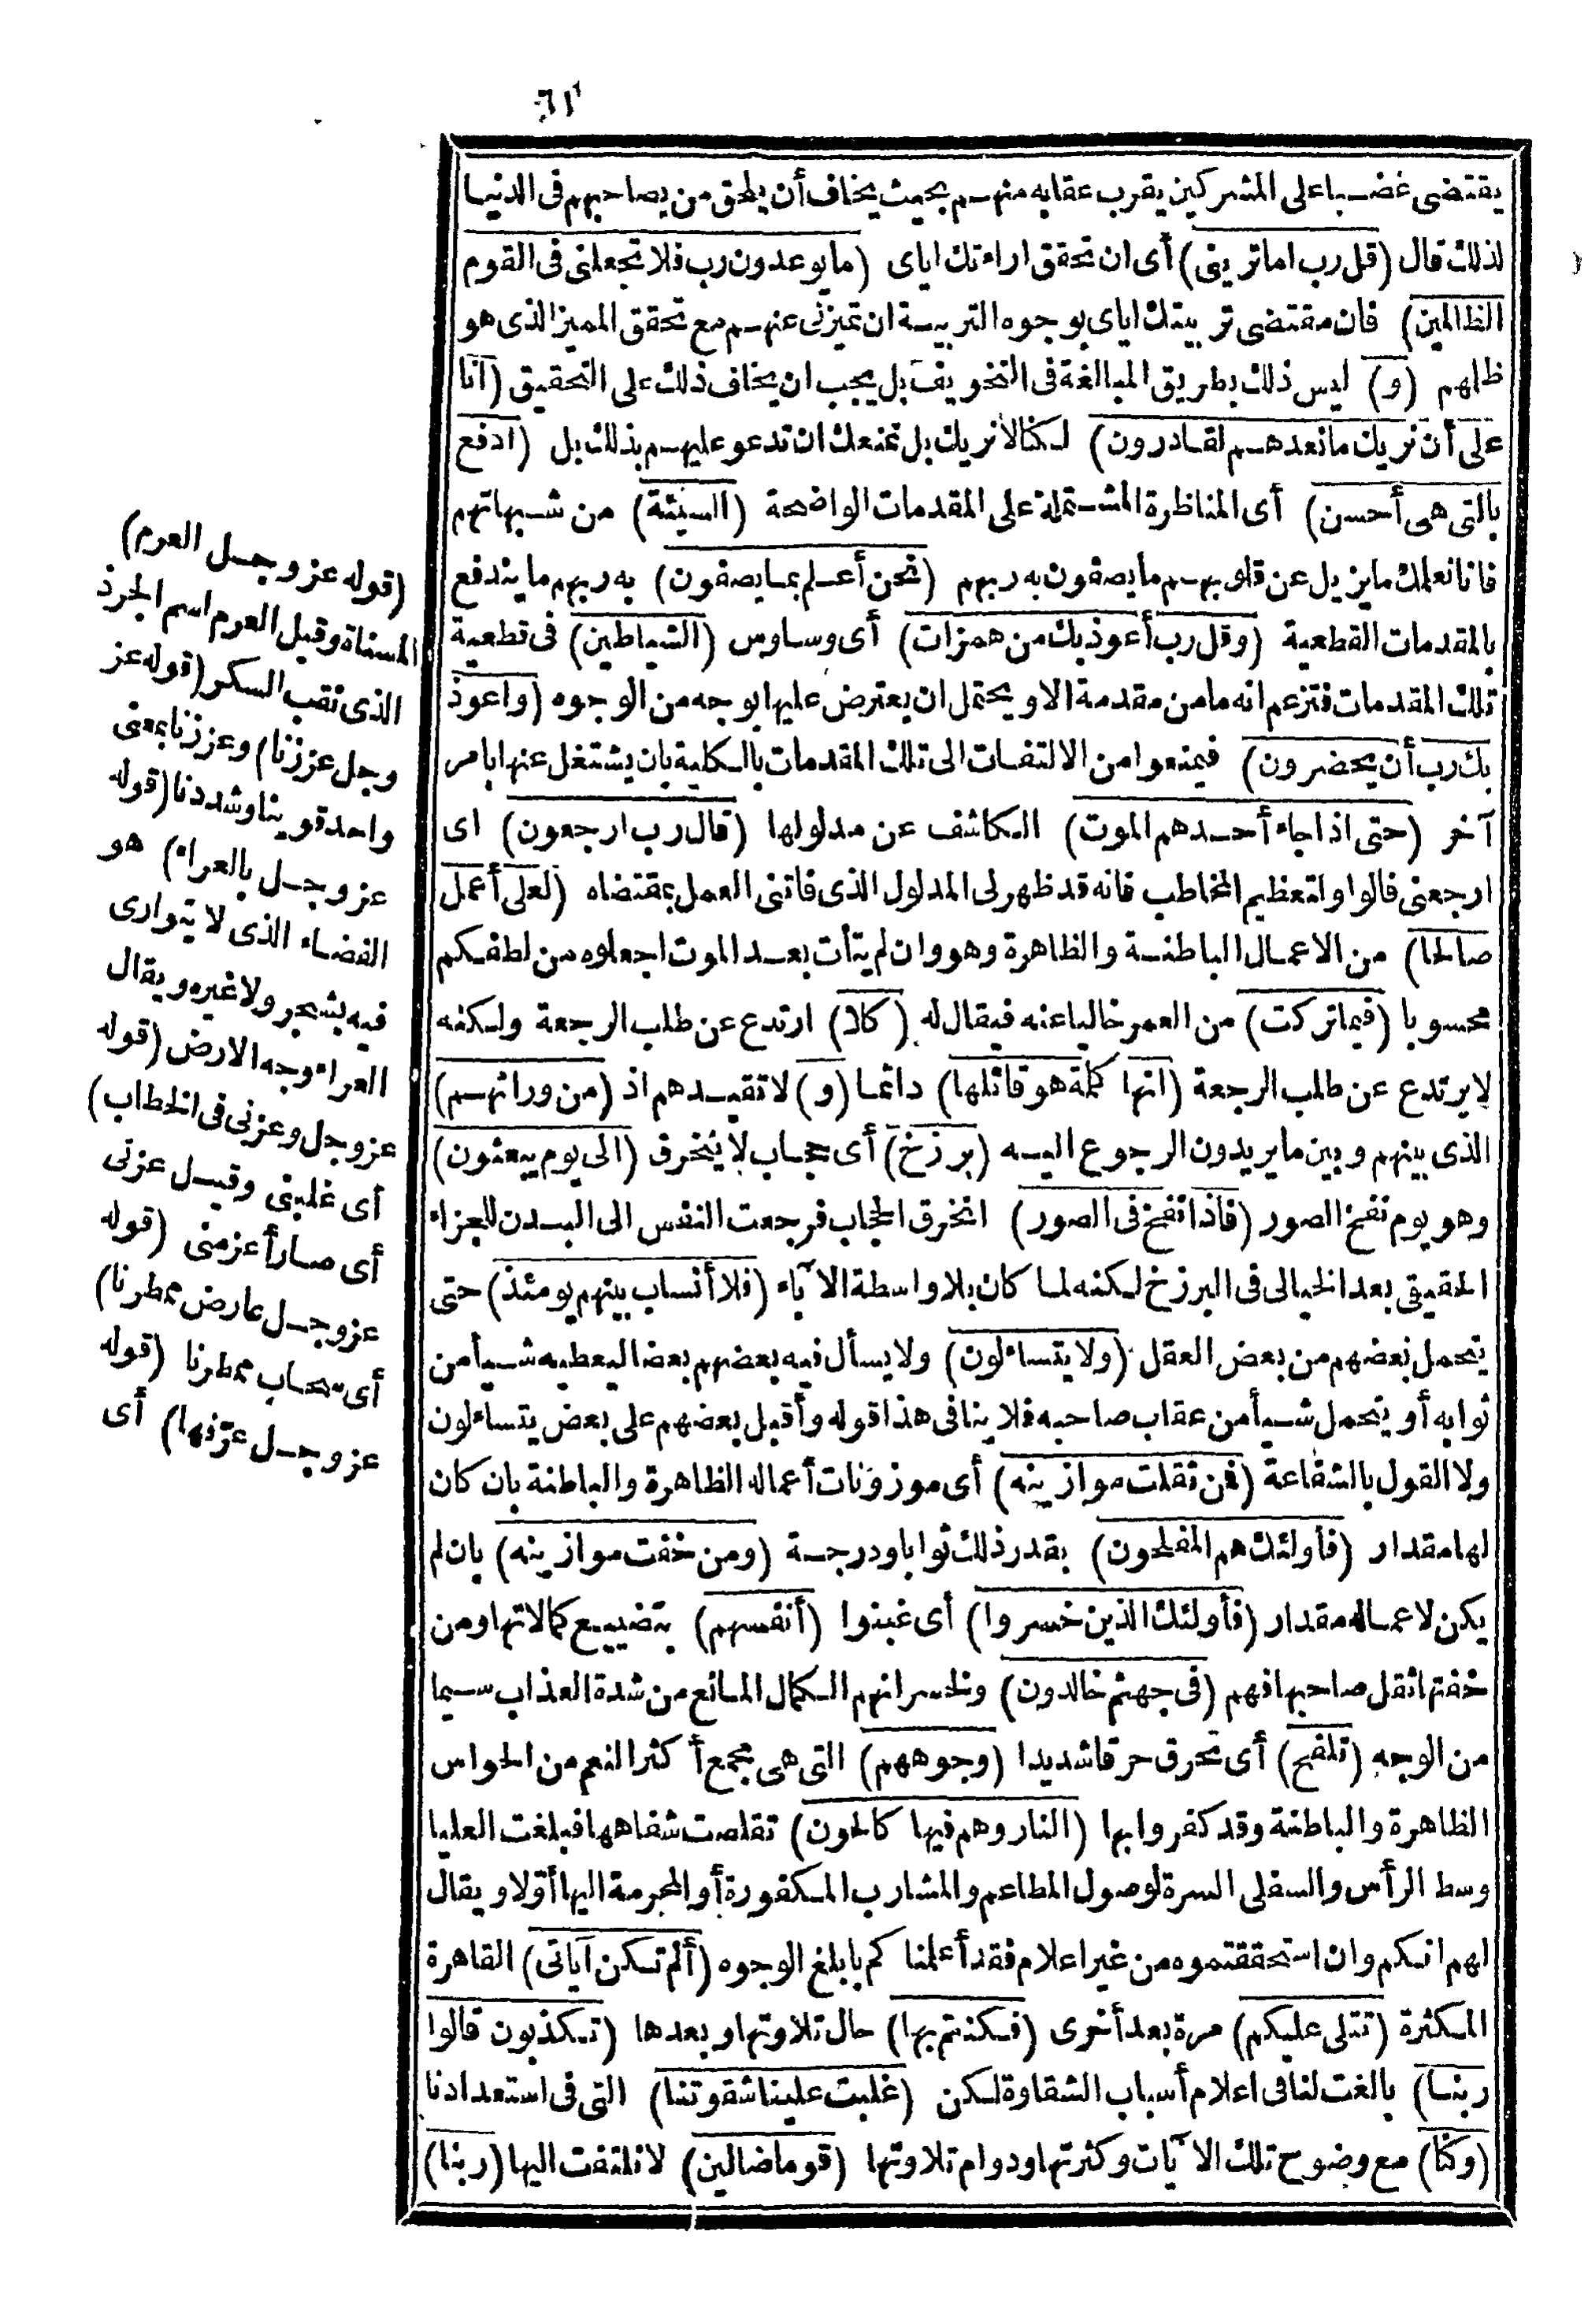 ٦١
يقتضى غضبا على المشركين يقرب عقابه منهم بحيث يخاف أن يلحق من يصاحبهم فى الدنيا
لذلك قال (قل رب اما ترينى) أى ان تحقق اراءتك اياى (ما يوعدون رب فلا تجعلنى فى القوم
الظالمين) فان مقتضى تربيتك اياى بوجوه التربية ان تميزنى عنهم مع تحقق المميز الذى هو
ظلهم (و) ليس ذلك بطريق المبالغة فى التخويف بل يجب ان يخاف ذلك على التحقيق (انا
على أن نريك ما نعدهم لقادرون) لكنا لا نريك بل نمنعك ان تدعو عليهم بذلك بل (ادفع
بالتى هى أحسن) أى المناظرة المشتملة على المقدمات الواضحة (السيئة) من شبهاتهم
فانا نعلمك ما يزيل عن قلوبهم ما يصفون به ربهم (نحن أعلم بما يصفون) به ربهم ما يندفع
بالمقدمات القطعية (وقل رب أعوذ بك من همزات) أى وساوس (الشياطين) فى قطعية
تلك المقدمات فتزعم انه ما من مقدمة الا ويحتمل ان يعترض عليها بوجه من الوجوه (واعوذ
بك رب أن يحضرون) فيمنعوا من الالتفات الى تلك المقدمات بالكلية بان يشتغل عنها بامر
آخر (حتى اذا جاء أحدهم الموت) الكاشف عن مدلولها (قال رب ارجعون) اى
ارجعنى فالواو لتعظيم المخاطب فانه قد ظهر لى المدلول الذى فاتنى العمل بمقتضاه (لعلى أعمل
صالحا) من الاعمال الباطنة والظاهرة وهو وان لم يتأت بعد الموت اجعلوه من لطفكم
محسوبا (فيما تركت) من العمر خاليا عنه فيقال له (كلا) ارتدع عن طلب الرجعة ولكنه
لا يرتدع عن طلب الرجعة (انها كلمة هو قائلها) دائما (و) لا تقيدهم اذ (من ورائهم)
الذى بينهم وبين ما يريدون الرجوع اليه (برزخ) أى حجاب لا ينخرق (الى يوم يبعثون)
وهو يوم نفخ الصور (فاذا نفخ فى الصور) انخرق الحجاب فرجعت النفس الى البدن للجزاء
الحقيقى بعد الخيالى فى البرزخ لكنه لما كان بلا واسطة الآباء (فلا أنساب بينهم يومئذ) حتى
يتحمل بعضهم من بعض العقل (ولا يتساءلون) ولا يسأل فيه بعضهم بعضا ليعطيه شيأ من
ثوابه أو يتحمل شيأ من عقاب صاحبه فلا ينافى هذا قوله وأقبل بعضهم على بعض يتساءلون
ولا القول بالشفاعة (فمن ثقلت موازينه) أى موزونات أعماله الظاهرة والباطنة بان كان
لها مقدار (فأولئك هم المفلحون) بقدر ذلك ثوابا ودرجة (ومن خفت موازينه) بان لم
يكن لاعماله مقدار (فأولئك الذين خسروا) أى غبنوا (أنفسهم) بتضييع كمالاتها ومن
خفتها ثقل صاحبها فهم (فى جهنم خالدون) ولخسرانهم الكمال المانع من شدة العذاب سيما
من الوجه (تلفح) أى تحرق حرقا شديدا (وجوههم) التى هى مجمع أكثر النعم من الحواس
الظاهرة والباطنة وقد كفروا بها (النار وهم فيها كالحون) تقلصت شفاهها فبلغت العليا
وسط الرأس والسفلى السرة لوصول المطاعم والمشارب المكفورة أو المحرمة اليها أوّلا ويقال
لهم انكم وان استحققتموه من غير اعلام فقد أعلمناكم بابلغ الوجوه (ألم تكن آياتى) القاهرة
المكثرة (تتلى عليكم) مرة بعد أخرى (فكنتم بها) حال تلاوتها وبعدها (تكذبون قالوا
ربنا) بالغت لنا فى اعلام أسباب الشقاوة لكن (غلبت علينا شقوتنا) التى فى استعدادنا
(وكنا) مع وضوح تلك الآيات وكثرتها ودوام تلاوتها (قوما ضالين) لا نلتفت اليها (ربنا)
(قوله عز وجل العرم)
المسناة وقيل العرم اسم الجرذ
الذى نقب السكر (قوله عز
وجل عززنا) وعززنا بمعنى
واحد قوينا وشددنا (قوله
عز وجل بالعراء) هو
الفضاء الذى لا يتوارى
فيه بشجر ولا غيره ويقال
العراء وجه الارض (قوله
عز وجل وعزنى فى الخطاب)
أى غلبنى وقيل عزنى
أى صار أعز منى (قوله
عز وجل عارض ممطرنا)
أى سحاب ممطرنا (قوله
عز وجل عرّفها) أى